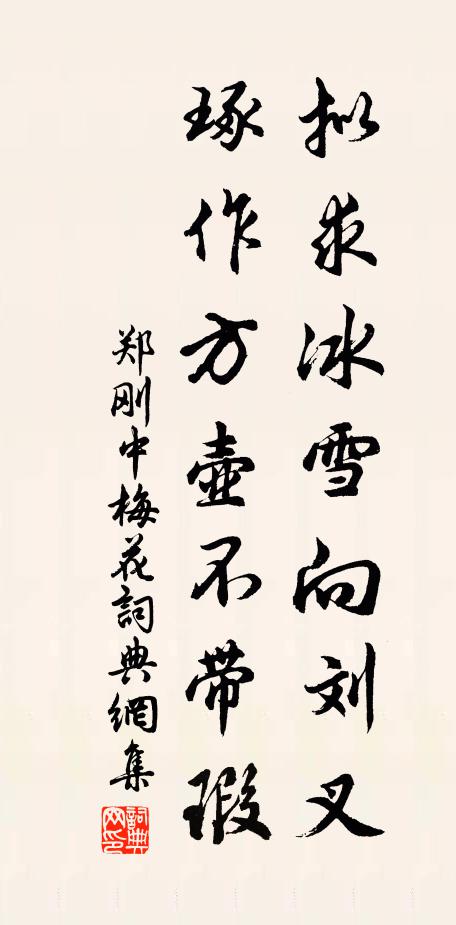 拟求冰雪向刘叉
琢作方壶不带瑕
郑刚中梅花詞典網集
詞典网印